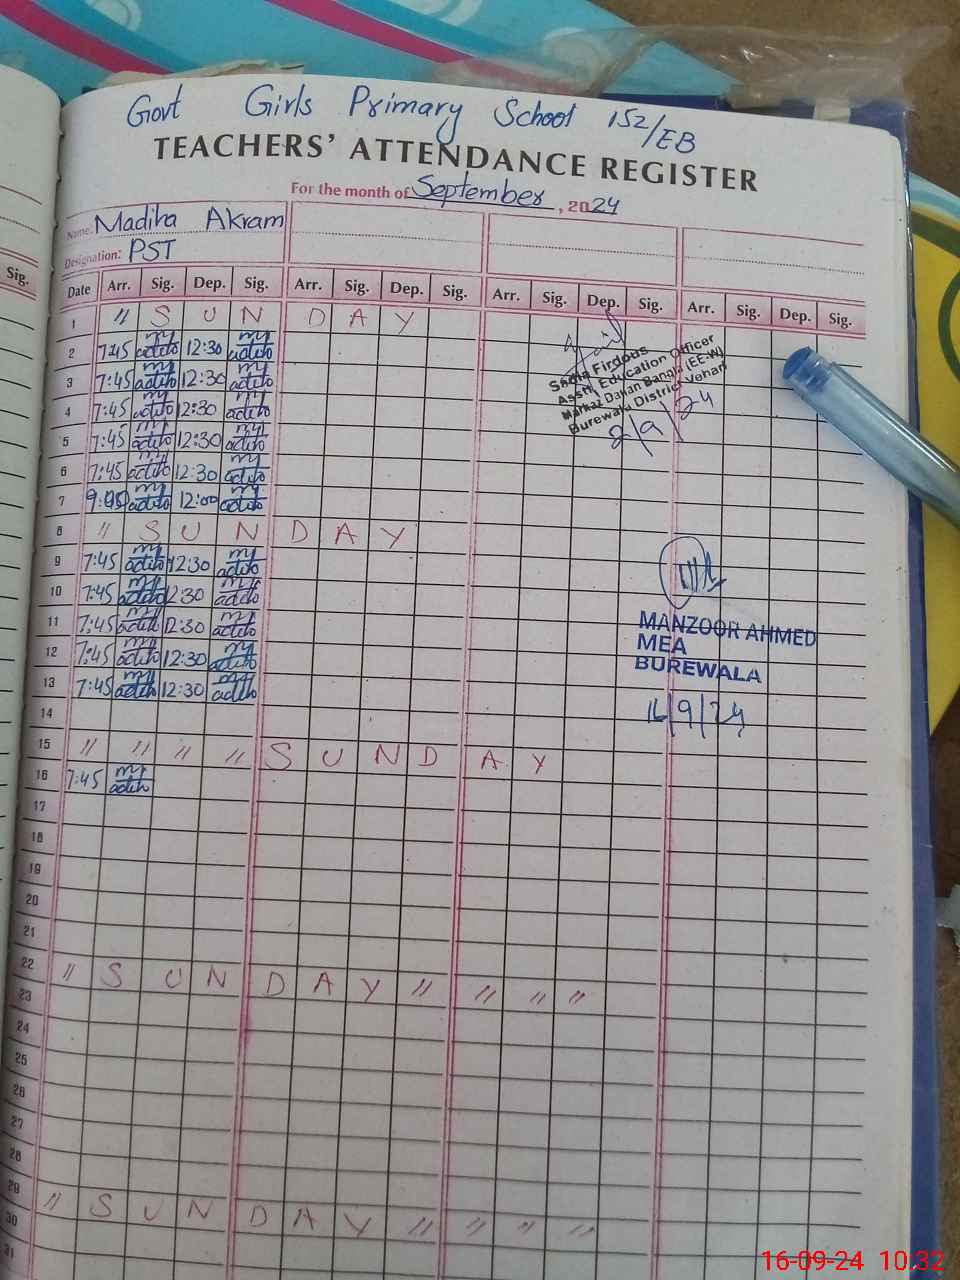 Govt Girls Primary School 152/EB
TEACHERS' ATTENDANCE REGISTER
For the month of September, 2024
Name: Madiha Akram
Designation: PST
Sig.
Date Arr. Sig. Dep. Sig. Arr. Sig. Dep. Sig. Arr. Sig. Dep. Sig. Arr. Sig. Dep. Sig.
1 " S U N D A Y
2 7:45 12:30
3 7:45 12:30
4 7:45 12:30
5 7:45 12:30
6 7:45 12:30
7 12:00
8 " S U N D A Y
9 7:45 12:30
10 7:45 12:30
11 7:45 12:30
12 7:45 12:30
13 7:45 12:30
14
15 " " " " S U N D A Y
16 7:45
17
18
19
20
21
22 " S U N D A Y " " " "
23
24
25
26
27
28
29 " S U N D A Y " " " "
30
31
Firdous
Asstt. Education Officer
Markaz Dawan Bangla (EE-W)
Burewala District Vehari
2/9/24
MANZOOR AHMED
MEA
BUREWALA
16/9/24
16-09-24 10:32